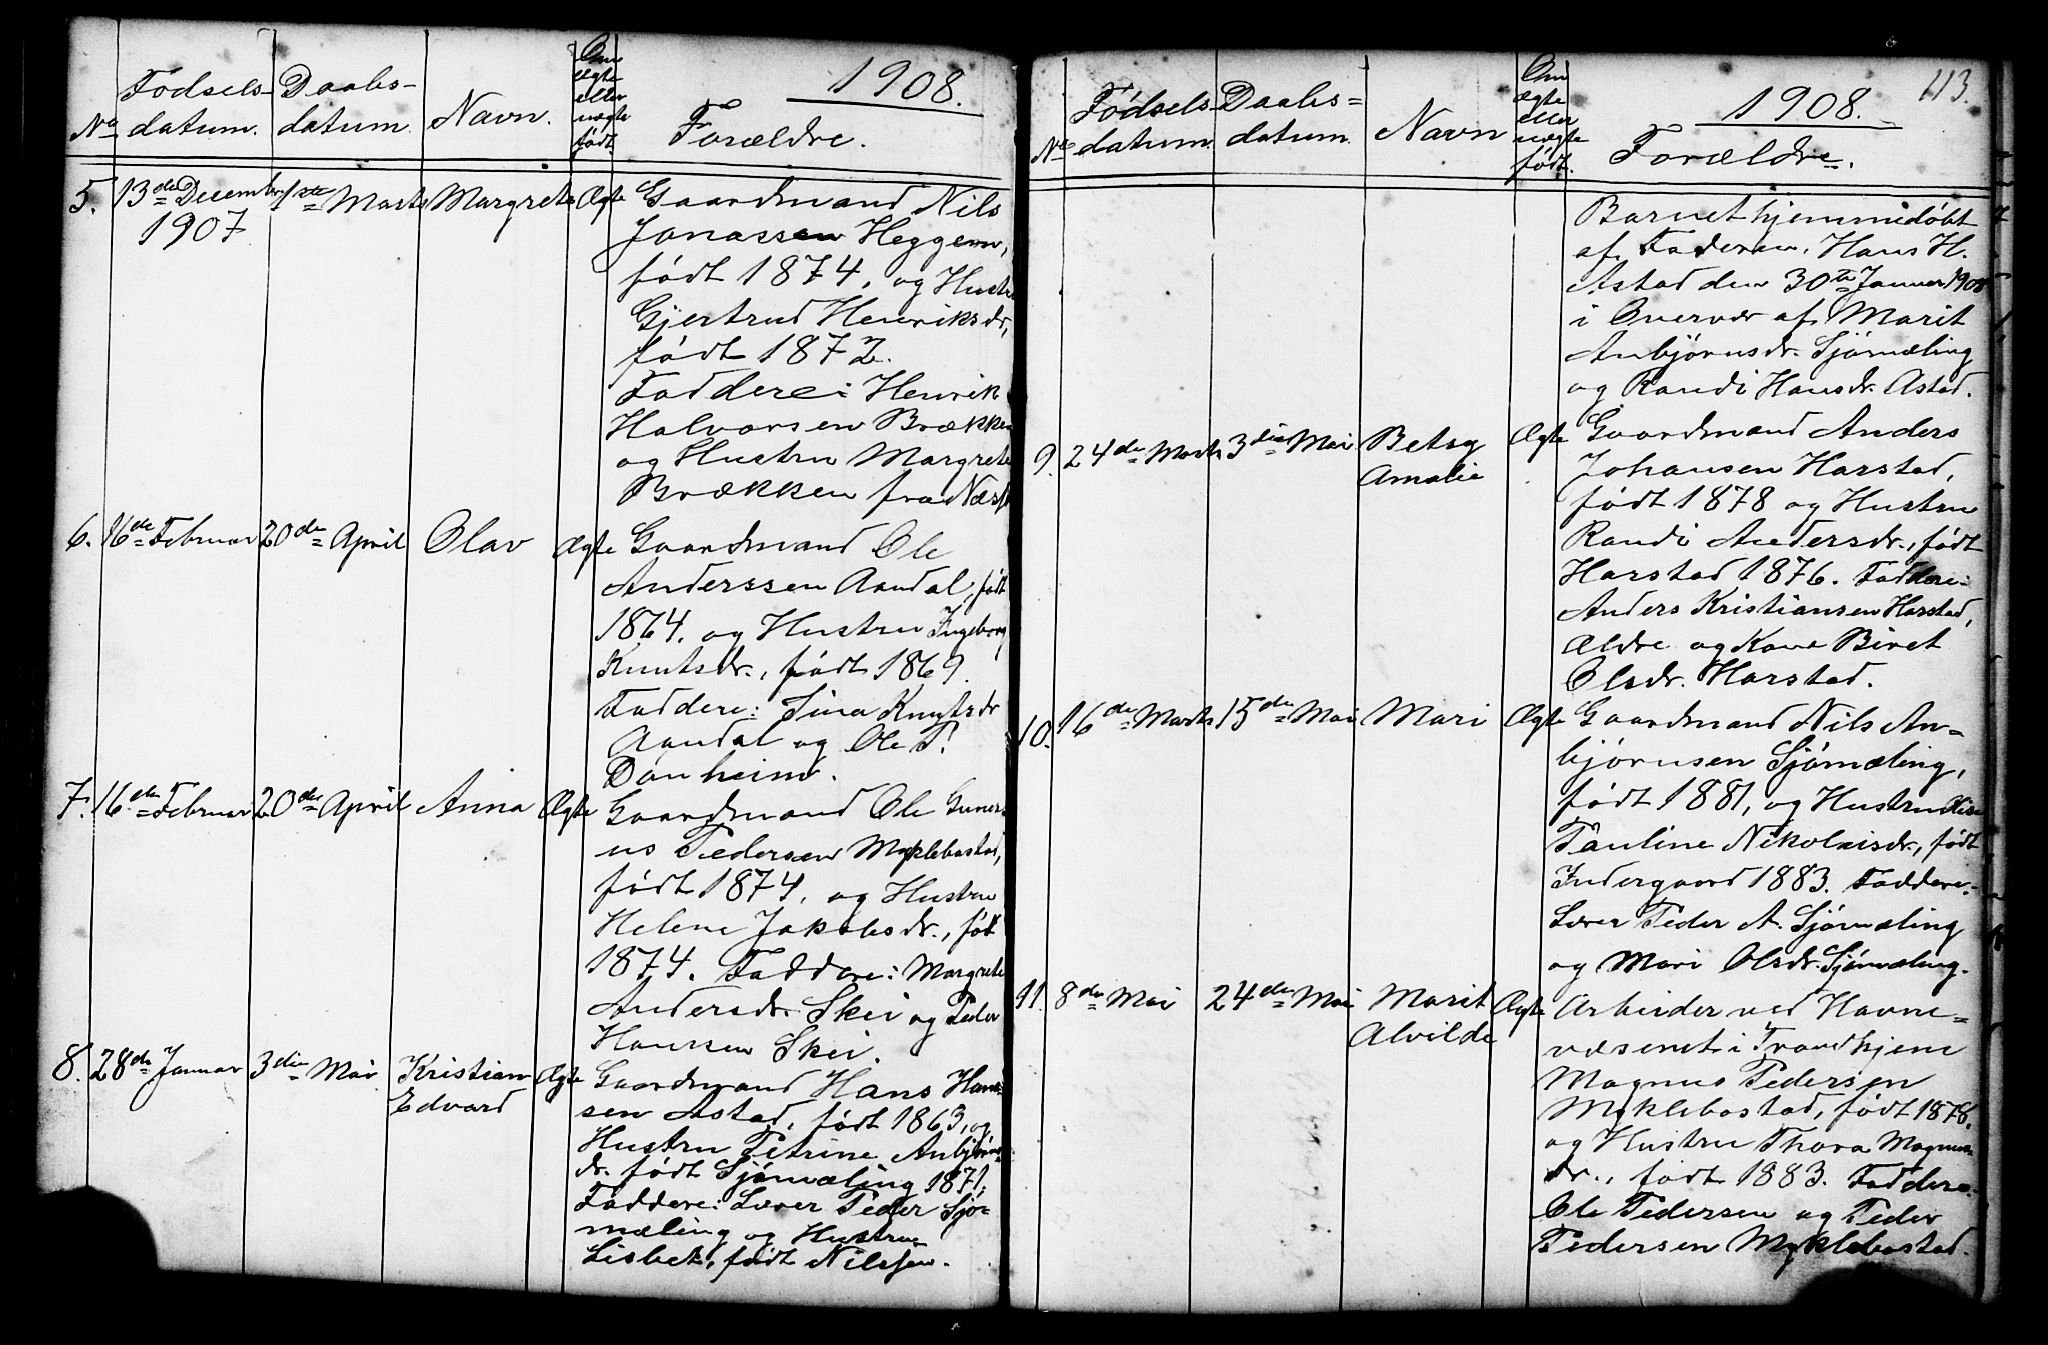 1908.
No
Fødsels-
datum.
Daabs-
datum.
Navn.
Om
ægte
eller
uægte
født.
Forældre.
5. 13de Decembr 1ste Marts Margrete Ægte Gaardmand Nils
1907
Jonassen Heggem,
født 1874, og Hustr
Gjertrud Henriksdr,
født 1872.
Faddere: Henrik
Halvorsen Brækken
og Hustru Margrete
Brækken fra Næss
6. 16de Februar 20de April Olav Ægte Gaardmand Ole
Anderssen Aandal, født
1864, og Hustru Ingeborg
Knutsdr., født 1869.
Faddere: Sina Knutsdr
Aandal og Ole P.
Dønheim.
7. 16de Februar 20de April Anna Ægte Gaardmand Ole Guner-
us Pedersen Myklebostad,
født 1874, og Hustru
Helene Jakobsdr., født
1874. Faddere: Margrete
Andersdr. Skei og Peder
Hanssen Skei.
8. 28de Januar 3die Mai Kristian Ægte Gaardmand Hans Han-
Edvard
sen Astad, født 1863, og
Hustru Petrine Anbjørns-
dr. født Sjømæling 1871.
Faddere: Lærer Peder Sjø-
mæling og Hustru
Lisbet, født Nilssen.
113.
1908.
No
Fødsels-
datum.
Daabs=
datum.
Navn
Om
ægte
eller
uægte
født.
Forældre.
Barnet hjemmedøbt
af Faderen, Hans H.
Astad den 30te Januar 1908
i Overvær af Marit
Anbjørnsdr. Sjømæling
og Randi Hansdr. Astad.
9. 24de Marts 3die Mai Betsy Ægte Gaardmand Anders
Amalie
Johansen Harstad,
født 1878 og Hustru
Randi Andersdr., født
Harstad 1876. Faddere:
Anders Kristiansen Harstad,
Ældre og Kone Biret
Olsdr. Harstad.
10. 16de Marts 15de Mai Mari Ægte Gaardmand Nils An-
bjørnsen Sjømæling,
født 1881, og Hustru Elise
Pauline Nikolaisdr., født
Indergaard 1883. Faddere:
Lærer Peder A. Sjømæling
og Mari Olsdr. Sjømæling.
11. 8de Mai 24de Mai Marit Ægte Arbeider ved Havne=
Alvilde
væsenet i Trondhjem
Magnus Pedersen
Myklebostad, født 1878.
og Hustru Thora Magnus-
dr., født 1883. Faddere:
Ole Pedersen og Peder
Pedersen Myklebostad.